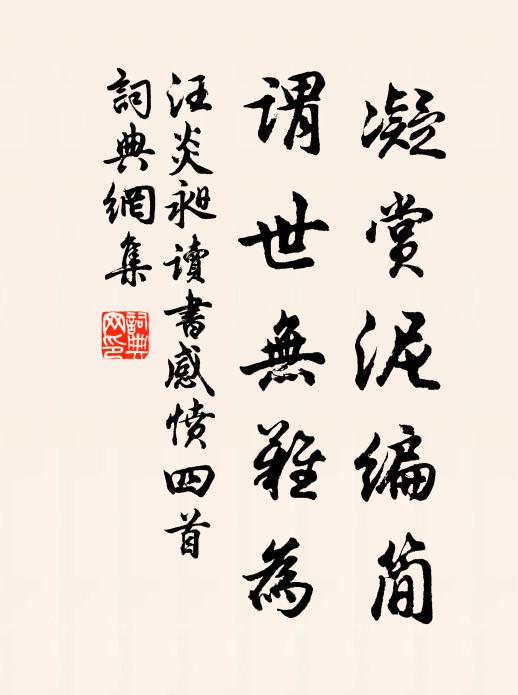 凝賞泥編简
謂世無難為
汪炎昶讀書感憤四首
詞典網集
詞典
网印